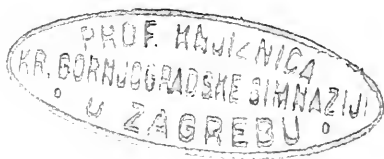 PROF. KNJIŽNICA
KR. GORNJOGRADSKE GIMNAZIJE
U ZAGREBU